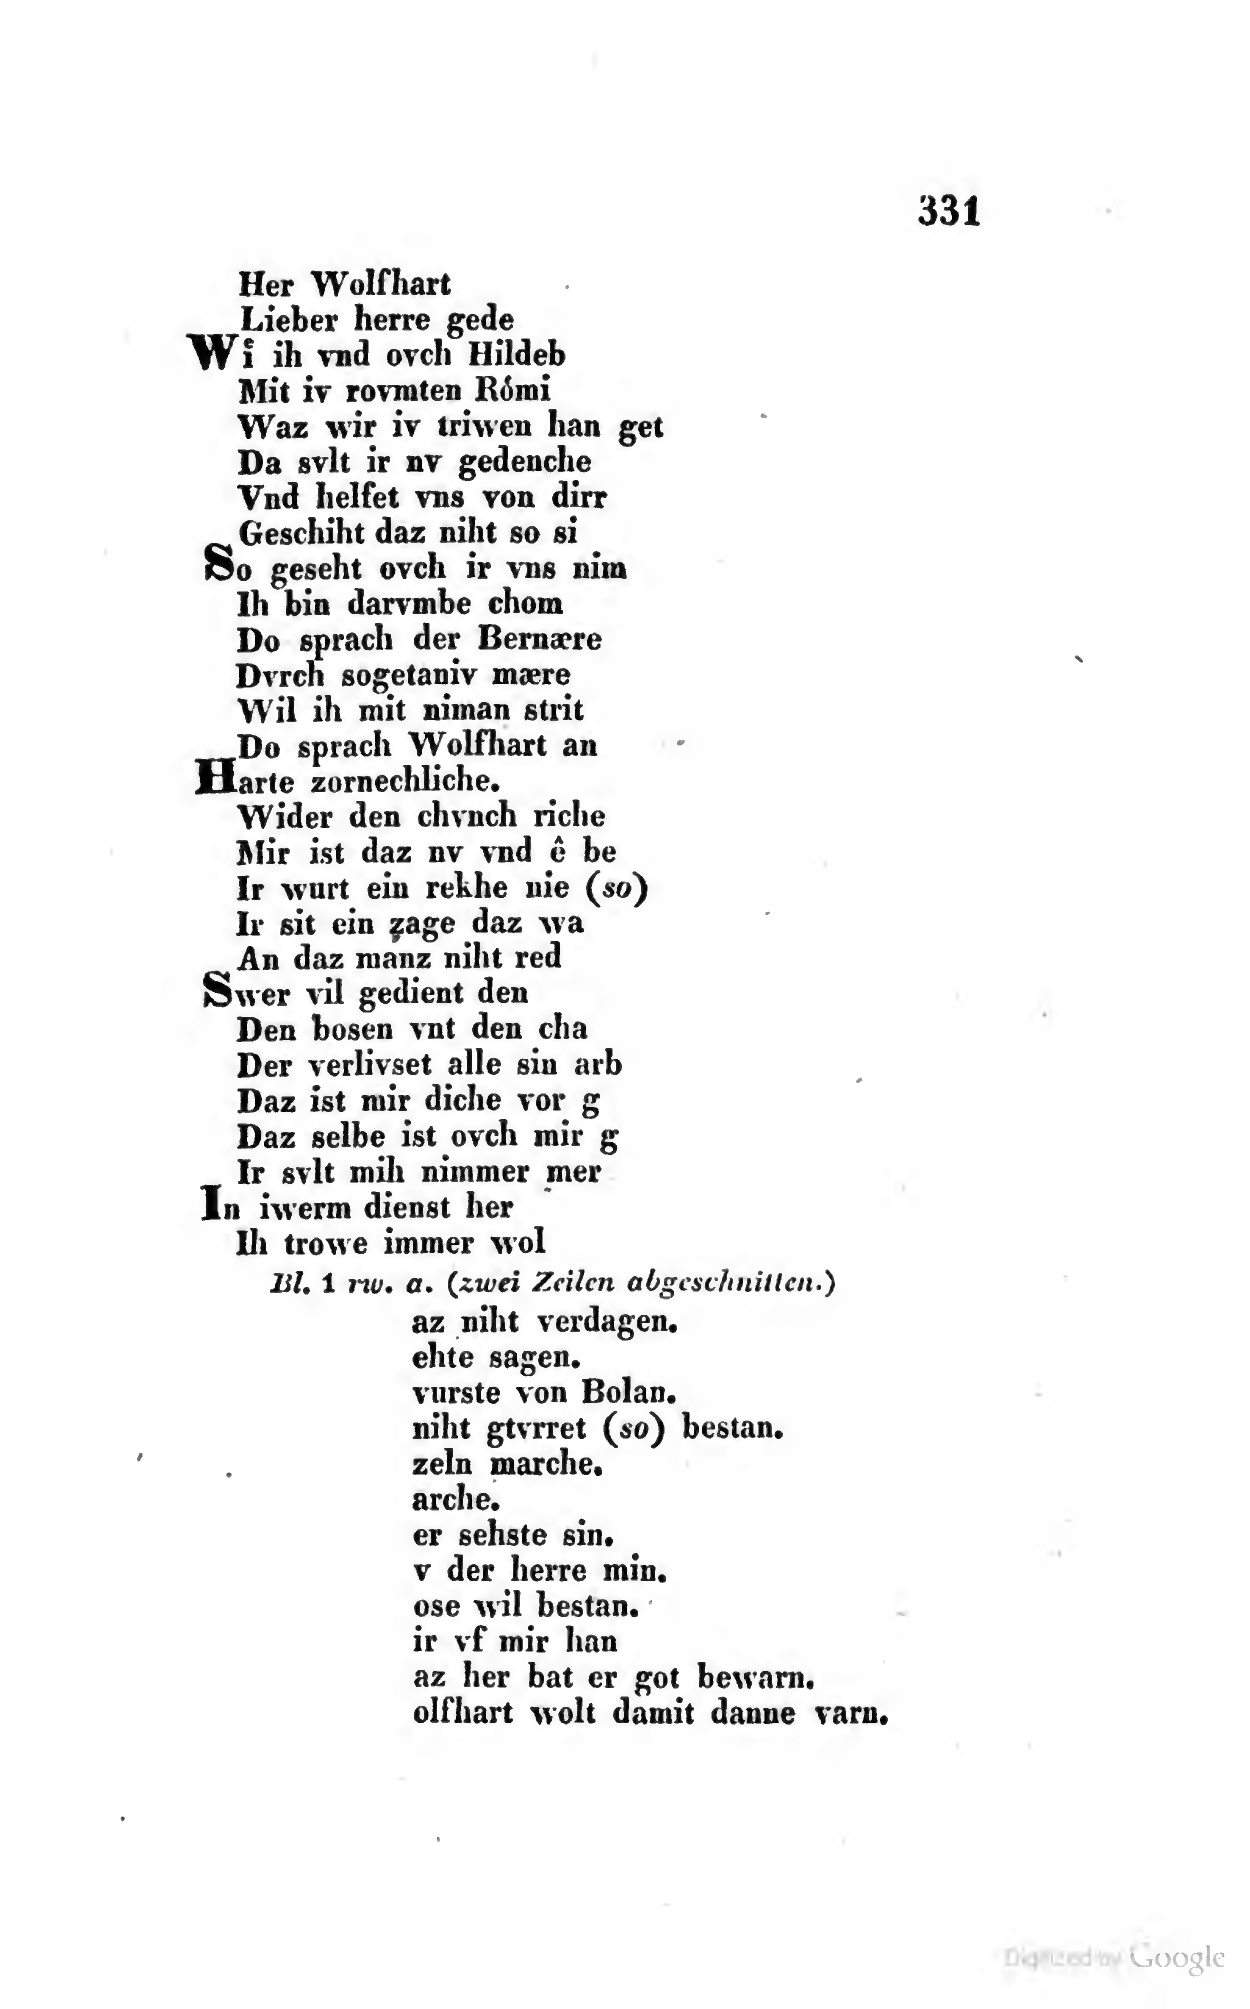 331
Her Wolfhart
Lieber herre gede
Wi ih vnd ovch Hildeb
Mit iv rovmten Rómi
Waz wir iv triwen han get
Da svlt ir nv gedenche
Vnd helfet vns von dirr
Geschiht daz niht so si
So geseht ovch ir vns nim
Ih bin darvmbe chom
Do sprach der Bernære
Dvrch sogetaniv mære
Wil ih mit niman strit
Do sprach Wolfhart an
Harte zornechliche.
Wider den chvnch riche
Mir ist daz nv vnd ê be
Ir wurt ein rekhe nie (so)
Ir sit ein zage daz wa
An daz manz niht red
Swer vil gedient den
Den bosen vnt den cha
Der verlivset alle sin arb
Daz ist mir diche vor g
Daz selbe ist ovch mir g
Ir svlt mih nimmer mer
In iwerm dienst her
Ih trowe immer wol
Bl. 1 rw. a. (zwei Zeilen abgeschnitten.)
az niht verdagen.
ehte sagen.
vurste von Bolan.
niht gtvrret (so) bestan.
zeln marche.
arche.
er sehste sin.
v der herre min.
ose wil bestan.
ir vf mir han
az her bat er got bewarn.
olfhart wolt damit danne varn.
Digitized by Google